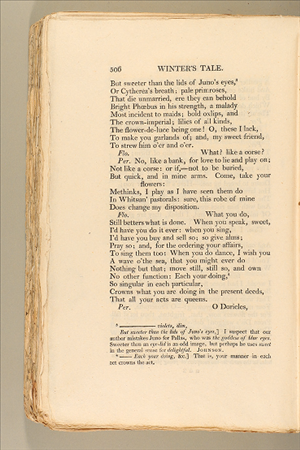 306 WINTER'S TALE.
But sweeter than the lids of Juno's eyes,⁸
Or Cytherea's breath; pale primroses,
That die unmarried, ere they can behold
Bright Phœbus in his strength, a malady
Most incident to maids; bold oxlips, and
The crown-imperial; lilies of all kinds,
The flower-de-luce being one! O, these I lack,
To make you garlands of; and, my sweet friend,
To strew him o'er and o'er.
Flo. What? like a corse?
Per. No, like a bank, for love to lie and play on;
Not like a corse: or if,—not to be buried,
But quick, and in mine arms. Come, take your
flowers:
Methinks, I play as I have seen them do
In Whitsun' pastorals: sure, this robe of mine
Does change my disposition.
Flo. What you do,
Still betters what is done. When you speak, sweet,
I'd have you do it ever: when you sing,
I'd have you buy and sell so; so give alms;
Pray so; and, for the ordering your affairs,
To sing them too: When you do dance, I wish you
A wave o'the sea, that you might ever do
Nothing but that; move still, still so, and own
No other function: Each your doing,⁹
So singular in each particular,
Crowns what you are doing in the present deeds,
That all your acts are queens.
Per. O Doricles,
⁸ —— violets, dim,
But sweeter than the lids of Juno's eyes,] I suspect that our
author mistakes Juno for Pallas, who was the goddess of blue eyes.
Sweeter than an eye-lid is an odd image, but perhaps he uses sweet
in the general sense for delightful. JOHNSON.
⁹ —— Each your doing, &c.] That is, your manner in each
act crowns the act.